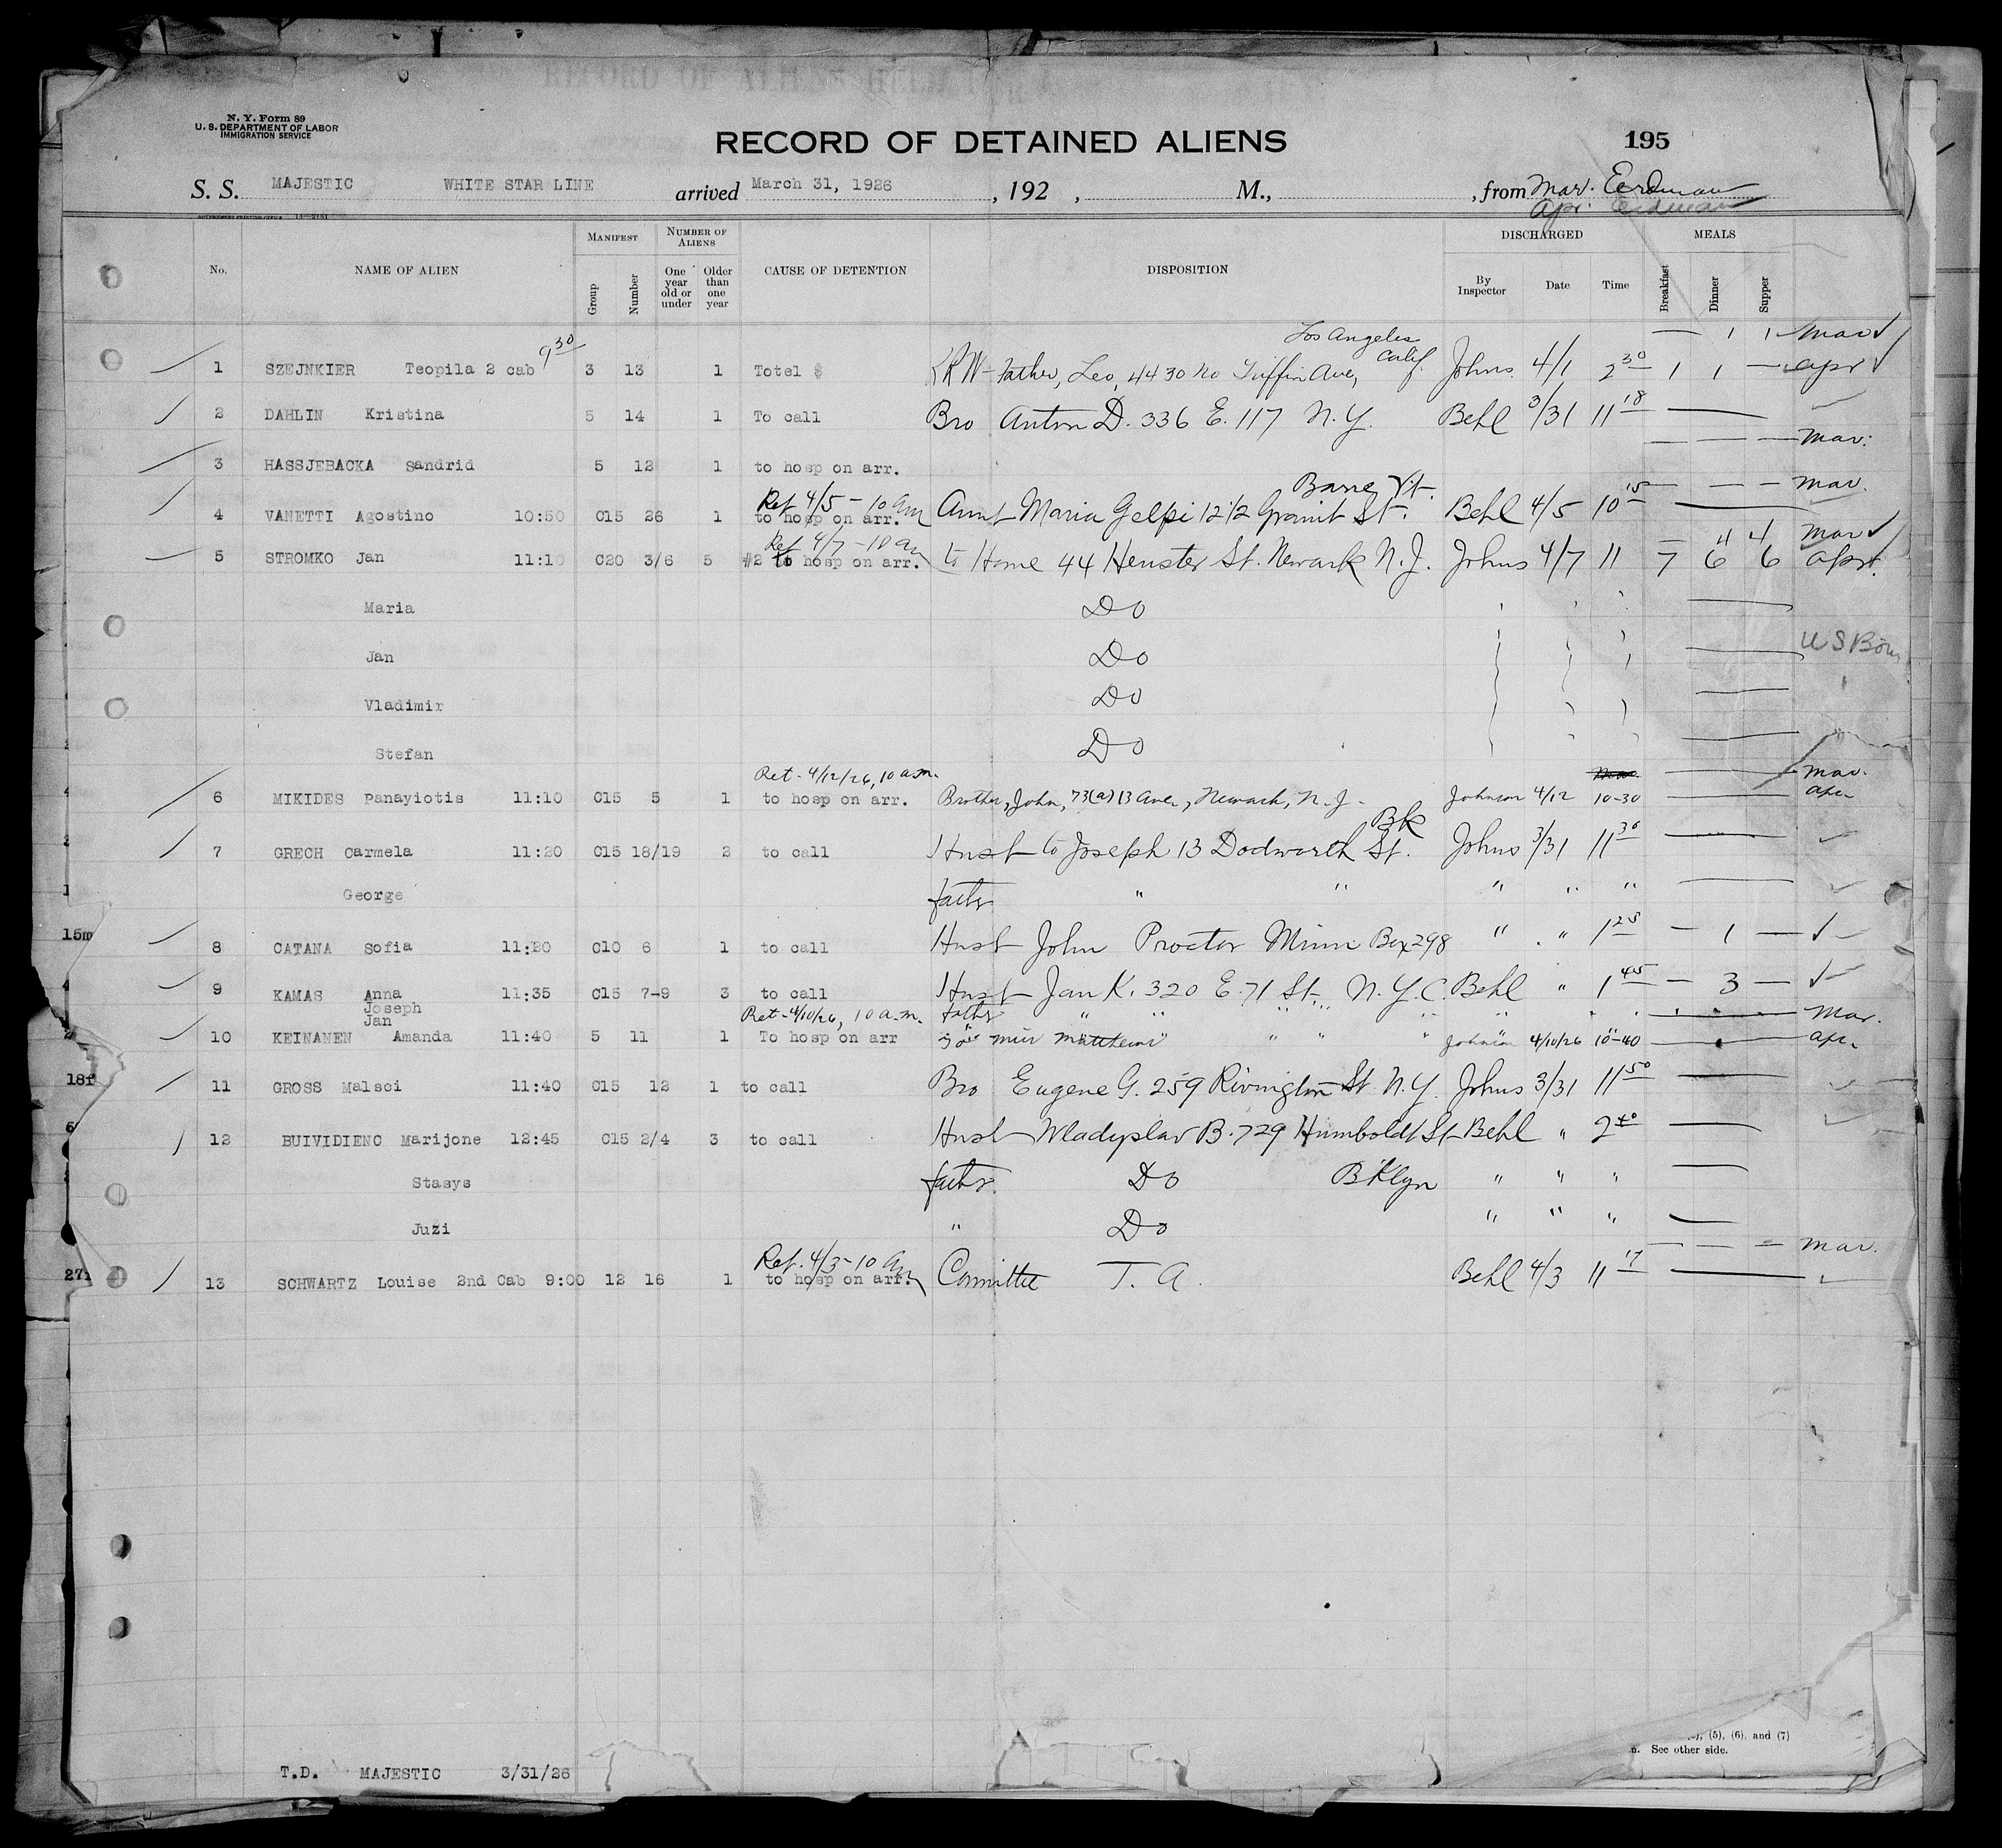 N. Y. Form 89
U. S. DEPARTMENT OF LABOR
IMMIGRATION SERVICE
RECORD OF DETAINED ALIENS 195
S. S. MAJESTIC WHITE STAR LINE arrived March 31, 1926, 192 , M., , from Mar. Eerdman
Apr. Eerdman
MANIFEST NUMBER OF ALIENS DISCHARGED MEALS
No. NAME OF ALIEN Group Number One year old or under Older than one year CAUSE OF DETENTION DISPOSITION By Inspector Date Time Breakfast Dinner Supper
Los Angeles — 1 1 Mar ✓
1 SZEJNKIER Teopila 2 cab 9 30 3 13 1 Totel $ RRW- Father, Leo, 4430 No Tuffin Ave, Calif. Johns. 4/1 2 30 1 1 — apr ✓
2 DAHLIN Kristina 5 14 1 To call Bro Anton D. 336 E. 117 N.Y. Behl 3/31 11 18 —
— — — Mar.
3 HASSJEBACKA Sandrid 5 12 1 to hosp on arr.
Ret 4/5 - 10 am Barre Vt. — — — Mar.
4 VANETTI Agostino 10:50 C15 26 1 to hosp on arr. Aunt Maria Gelpi 12 1/2 Granit St. Behl 4/5 10 15 —
Ret 4/7 - 10 am — 4 4 Mar ✓
5 STROMKO Jan 11:10 C20 3/6 5 #2 to hosp on arr. to Home 44 Henster St. Newark N.J. Johns 4/7 11 7 6 6 apr.
Maria Do
Jan Do U S Born
Vladimir Do
Stefan Do
Ret - 4/12/26, 10 a.m. Mar.
6 MIKIDES Panayiotis 11:10 C15 5 1 to hosp on arr. Brother, John, 73(a) 13 Ave., Newark, N.J. Johnson 4/12 10-30 — apr
Bk
7 GRECH Carmela 11:20 C15 18/19 2 to call Husb to Joseph 13 Dodworth St. Johns 3/31 11 30 —
George father " " " " " —
8 CATANA Sofia 11:20 C10 6 1 to call Husb John Proctor Minn Box 298 " " 1 25 — 1 — ✓
9 KAMAS Anna 11:35 C15 7-9 3 to call Husb Jan K. 320 E. 71 St. N.Y.C. Behl " 1 45 — 3 — ✓
Joseph father " " " " " " "
Jan Ret - 4/10/26, 10 a.m. Mar.
10 KEINANEN Amanda 11:40 5 11 1 To hosp on arr Johnson 4/10/26 10-40 — apr.
11 GROSS Malsci 11:40 C15 12 1 to call Bro Eugene G. 259 Rivington St. N.Y. Johns 3/31 11 50 —
12 BUIVIDIENC Marijone 12:45 C15 2/4 3 to call Husb Wladyslav B. 729 Humboldt St Behl " 2 40 —
Stasys father. Do B'klyn " " " —
Juzi " Do " " " —
Ret. 4/3 - 10 am — — — Mar.
13 SCHWARTZ Louise 2nd Cab 9:00 12 16 1 to hosp on arr. Committee T. A. Behl 4/3 11 17 —
15m
18f
27
(5), (6), and (7)
See other side.
T.D. MAJESTIC 3/31/26